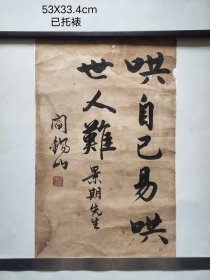 53X33.4cm
已托裱
哄自己易哄
世人難
景期先生
閻錫山